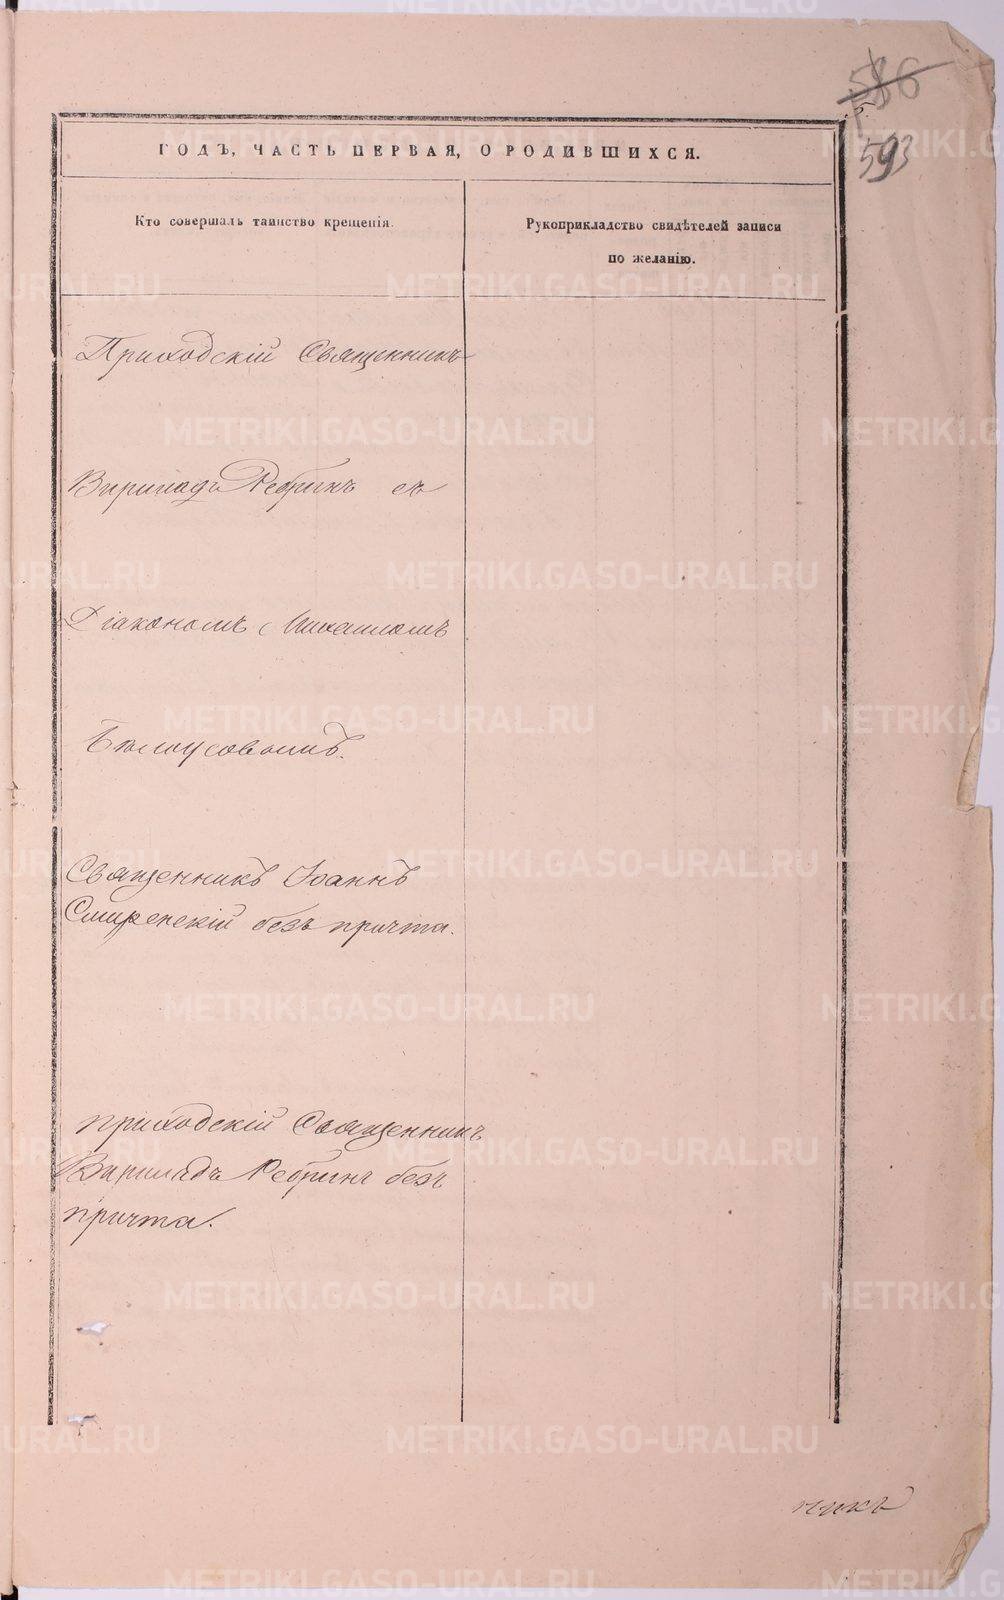 586
5.
593
ГОДЪ, ЧАСТЬ ПЕРВАЯ, О РОДИВШИХСЯ.
Кто совершалъ таинство крещенія.
Рукоприкладство свидѣтелей записи
по желанію.
Приходскій Священникъ
Вириладъ Ребринъ съ
Діакономъ Михаиломъ
Бѣлоусовымъ.
Священникъ Іоаннъ
Смиренскій безъ причта.
приходскій Священникъ
Вирилядъ Ребринъ безъ
причта.
никъ
METRIKI.GASO-URAL.RU